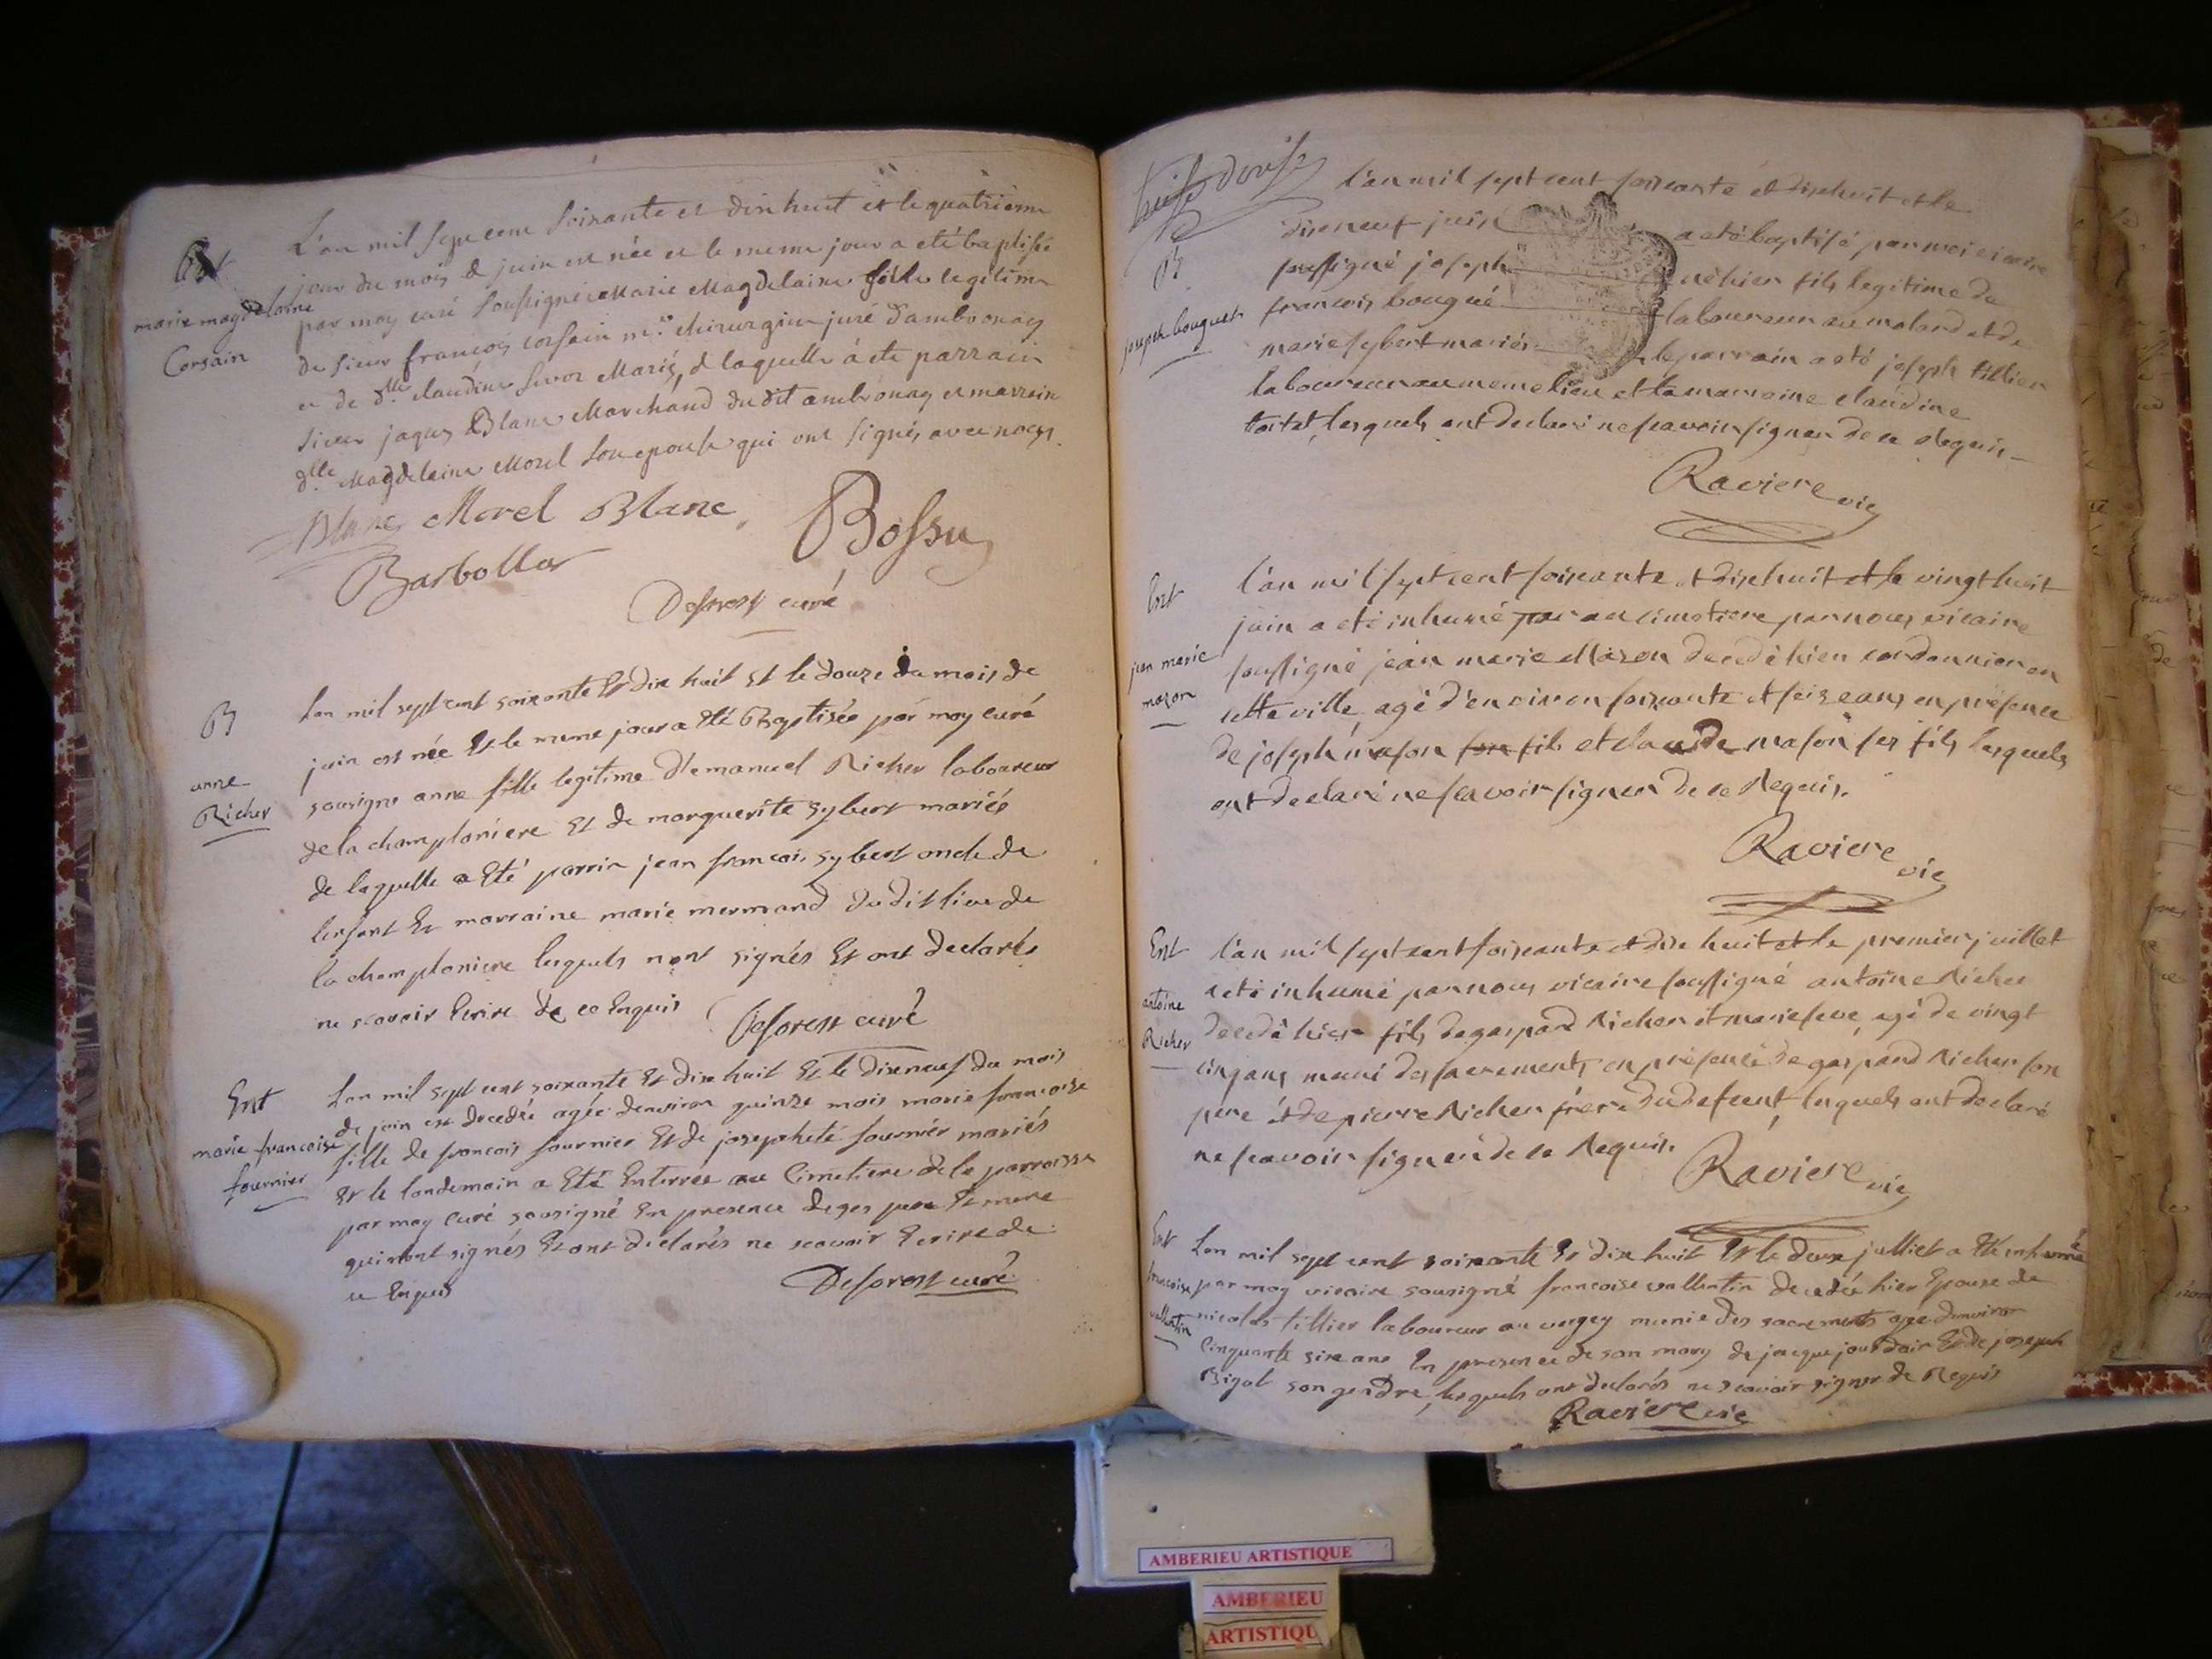 Bpt
marie magdelaine
Corsain
L'an mil sept cent soixante et dix huit et le quatrieme
jour du mois de juin est née et le meme jour a eté baptisée
par moy curé soussigné Marie Magdelaine fille legitime
de sieur françois corsain me chirurgien juré d'ambronay
et de dlle claudine mariés, de laquelle à ete parrain
sieur jaques Blanc Marchand dudit ambronay et marraine
dlle Magdelaine Morel son epouse qui ont signés avec nous.
Blanc Morel Blanc
Bossu
Barbollat
Deforest curé
B
anne
Richer
Lan mil sept cent soixante Et dix huit Et le douze du mois de
juin est née Et le meme jour a Eté Baptisée par moy curé
sousigne anne fille legitime d'emanuel Richer laboureur
de la champloniere Et de marguerite sybert mariés
de laquelle a Eté parrin jean francois sybert oncle de
lenfant Et marraine marie mermand dudit lieu de
la champloniere lesquels nont signés Et ont declarés
ne scavoir Ecrire de ce Enquis
Deforest curé
Ent
marie francoise
fournier
Lan mil sept cent soixante Et dix huit Et le dixneuf du mois
de juin est decedée agée denviron quinze mois marie francoise
fille de francois fournier Et de josephete fournier mariés
Et le landemain a Eté Enterrée au Cimetiere de la parroisse
par moy Curé sousigné En presence de ses pere Et mere
qui nont signés Et ont declarés ne scavoir Ecrire de
ce Enquis
Deforest curé
B
joseph bougué
l'an mil sept cent soixante et dixhuit et le
dixneuf juin a eté baptisé par moi vicaire
soussigné joseph né hier fils legitime de
francois bougué laboureur au molard et de
marie sybert mariés le parrain a eté joseph tillier
laboureur au meme lieu et la marraine claudine
lesquels ont declaré ne scavoir signer de ce Requis
Raviere vic
Ent
jean marie
mazon
l'an mil sept cent soixante et dixhuit et le vingt huit
juin a eté inhumé par au cimetiere par nous vicaire
soussigné jean marie Mazon decedé hier cordonnier en
cette ville, agé d'environ soixante et seize ans, en présence
de joseph mason son fils et claude mason ses fils lesquels
ont declaré ne scavoir signer de ce Requis.
Raviere vic
Ent
antoine
Richer
l'an mil sept cent soixante et dix huit et le premier juillet
a eté inhumé par nous vicaire soussigné antoine Richer
decedé hier fils de gaspard Richer et marie seve, agé de vingt
cinq ans muni des sacrements en présence de gaspard Richer son
pere et de pierre Richer frere du defunt, lesquels ont declaré
ne scavoir signer de ce Requis.
Raviere vic
Ent
francoise
vallentin
Lan mil sept cent soixante Et dix huit Et le deux julliet a Eté inhumé
par moy vicaire sousigné francoise vallentin decedée hier Epouse de
nicolas tillier laboureur au vergey munie des sacrements agée denviron
Cinquante sixe ans En presence de son mary de jacque jourdain Et de joseph
Bigot son gendre, lesquels ont declarés ne scavoir signer de Requis
Raviere vic
AMBERIEU ARTISTIQUE
AMBERIEU
ARTISTIQU